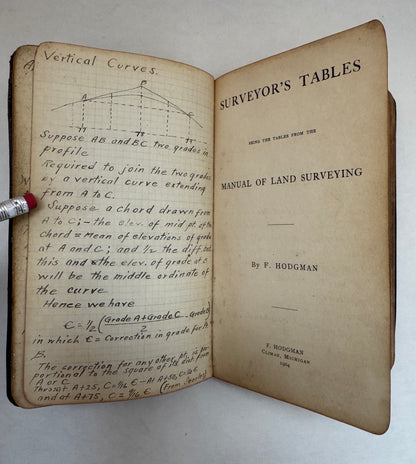 Vertical Curves.
B
A
C
17
18
19
Suppose AB and BC two grades in
profile
Required to join the two grades
by a vertical curve extending
from A to C.
Suppose a chord drawn from
A to C; - the elev. of mid pt. of the
chord = mean of elevations of grade
at A and C; and 1/2 the diff. bet.
this and the elev. of grade at
will be the middle ordinate of
the curve
Hence we have
= 1/2 (Grade A + Grade C / 2 - Grade B)
in which = correction in grade for
B.
The correction for any other pt. is pro-
portional to the square of its dist. from
A or C
Thus at A+25, 1/16 - At A+50,
and at A+75, 9/16 (From Searles)
SURVEYOR'S TABLES
BEING THE TABLES FROM THE
MANUAL OF LAND SURVEYING
By F. HODGMAN
F. HODGMAN
CLIMAX, MICHIGAN
1904